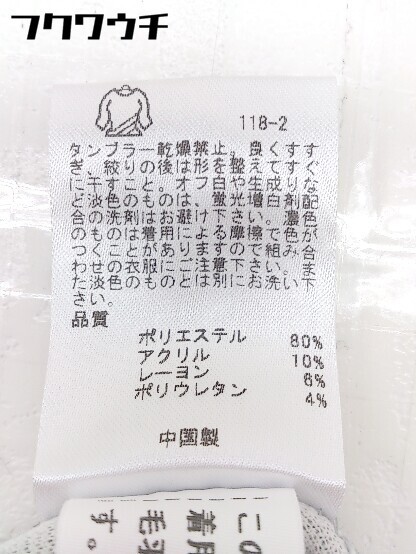 フクワウチ
118-2
タンブラー乾燥禁止。良くすす
ぎ、絞りの後は形を整えてすぐ
に干すこと。オフ白や生成りな
ど淡色のものは、蛍光増白剤配
合の洗剤はお避け下さい。濃色
のものは着用による摩擦で色が
つくことがありますので組み合
わせの衣服にご注意下さい。ま
た淡色のものとは別にお洗い下
さい。
品質
ポリエステル 80%
アクリル 10%
レーヨン 6%
ポリウレタン 4%
中国製
この
着用
毛羽
す。